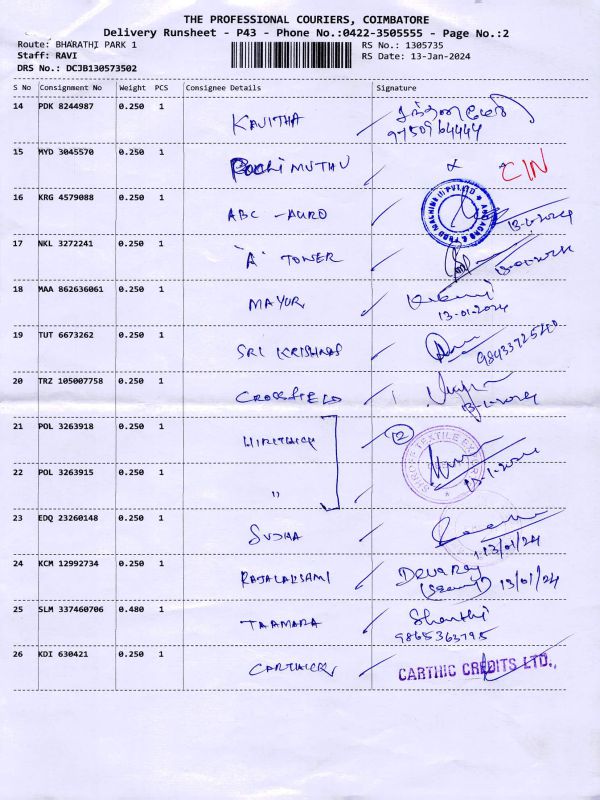 THE PROFESSIONAL COURIERS, COIMBATORE
Delivery Runsheet - P43 - Phone No.:0422-3505555 - Page No.:2
Route: BHARATHI PARK 1 RS No.: 1305735
Staff: RAVI RS Date: 13-Jan-2024
DRS No.: DCJB130573502
S No Consignment No Weight PCS Consignee Details Signature
14 PDK 8244987 0.250 1 KAVITHA
9750964444
15 MYD 3045570 0.250 1 MUTHU CIN
16 KRG 4579088 0.250 1 ABC - AURO
17 NKL 3272241 0.250 1 "A" TOWER 13-01-2024
18 MAA 862636061 0.250 1 MAYUR
13-01-2024
19 TUT 6673262 0.250 1 SRI KRISHNAS
20 TRZ 105007758 0.250 1 CROSSFIELD
21 POL 3263918 0.250 1 HIRITHICK 2
22 POL 3263915 0.250 1 "
23 EDQ 23260148 0.250 1 SUDHA
13/01/24
24 KCM 12992734 0.250 1 RAJALAKSHMI DEVARAJ
13/01/24
25 SLM 337460706 0.480 1 TAAMARA Shanthi
9865363795
26 KDI 630421 0.250 1 CARTHICK CARTHIC CREDITS LTD.,